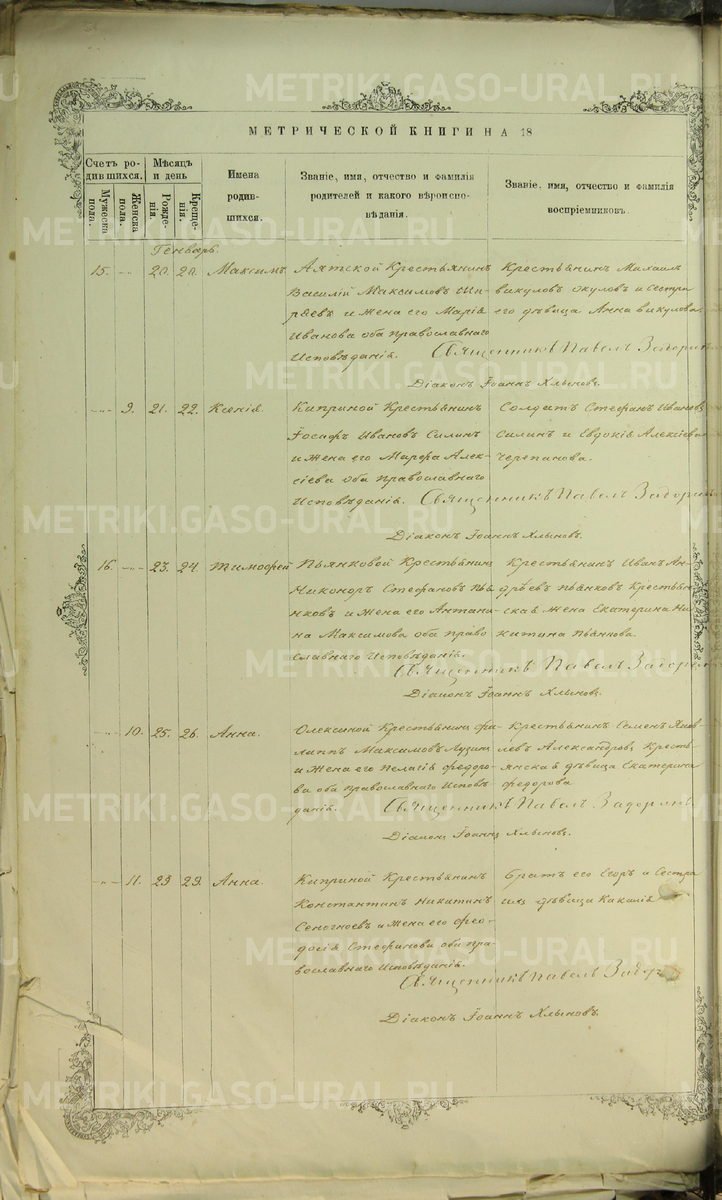 METRIKI.GASO-URAL.RU
МЕТРИЧЕСКОЙ КНИГИ НА 18
Счетъ родившихся.
Мужеска пола.
Женска пола.
Мѣсяцъ и день
Рожденія.
Крещенія.
Имена родившихся.
Званіе, имя, отчество и фамилія родителей и какого вѣроисповѣданія.
Званіе, имя, отчество и фамилія воспріемниковъ.
Генварь.
15. 20. 20. Максимъ
Аятской Крестьянинъ
Василій Максимовъ
и жена его Марія
Иванова оба православнаго
Исповѣданія.
Крестьянинъ Михаилъ
Викуловъ Окуловъ и сестра
его дѣвица Анна Викулова
Священникъ Павелъ
Діаконъ Іоаннъ Хлыновъ.
9. 21. 22. Ксенія.
Киприной Крестьянинъ
Іосифъ Ивановъ Силинъ
и жена его Марфа Алек-
сіева оба православнаго
Исповѣданія.
Солдатъ Стефанъ Ивановъ
Силинъ и Евдокія Алексіева
Черепанова.
Священникъ Павелъ
Діаконъ Іоаннъ Хлыновъ.
16. 23. 24. Тимофей
Пьянковой Крестьянинъ
Никоноръ Стефановъ Пья-
нковъ и жена его Антани-
на Максимова оба право
славнаго Исповѣданія.
Крестьянинъ Иванъ Ан-
дрѣевъ Пьянковъ Крестья
нская жена Екатерина Ни
китина Пьянкова.
Священникъ Павелъ
Діаконъ Іоаннъ Хлыновъ.
10. 25. 26. Анна.
Олексиной Крестьянинъ Фи-
липпъ Максимовъ Лузинъ
и жена его Пелагія Федоро-
ва оба православнаго Исповѣ
данія.
Крестьянинъ Семенъ Яков-
левъ Александровъ, Кресть-
янская дѣвица Екатерина
Федорова
Священникъ Павелъ
Діаконъ Іоаннъ Хлыновъ.
11. 29. Анна.
Киприной Крестьянинъ
Константинъ Никитинъ
и жена его Фео-
досія Стефанова оба пра-
вославнаго Исповѣданія.
Братъ его Егоръ и Сестра
ихъ дѣвица
Священникъ Павелъ
Діаконъ Іоаннъ Хлыновъ.